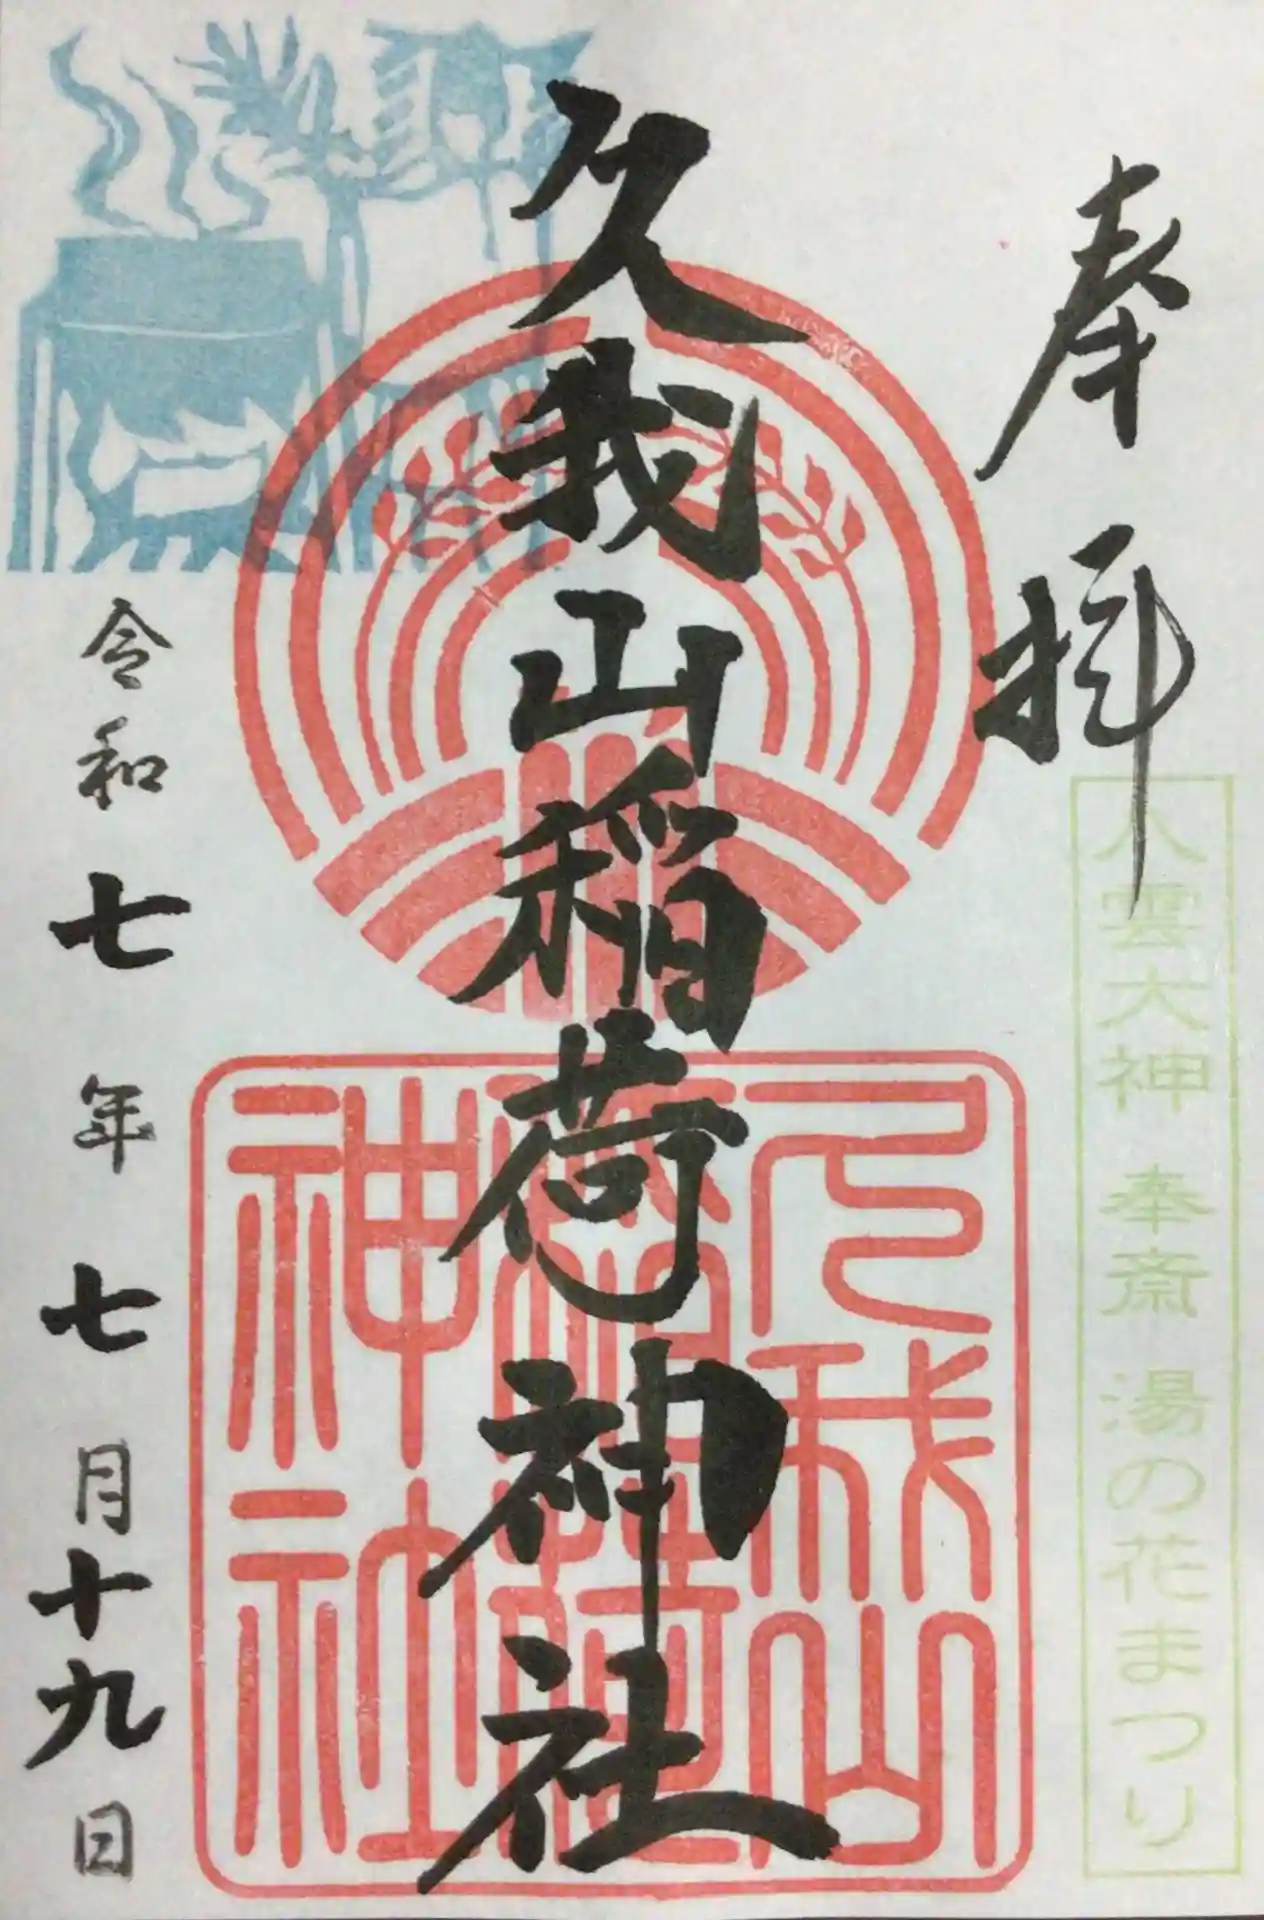 奉拝
八雲大神 奉斎 湯の花まつり
久我山稲荷神社
久我山
稲荷
神社
令和七年七月十九日